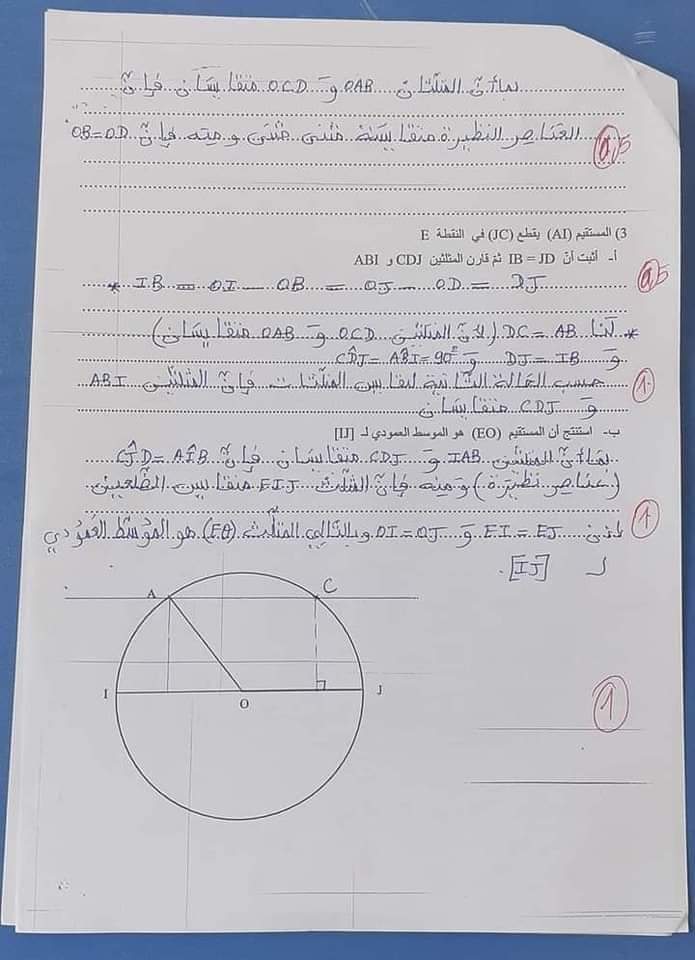 بما أنّ المثلثان OAB وَ OCD متقايسان فإنّ
العناصر النظيرة متقايسة مثنى مثنى و منه فإنّ OB=OD
0,5
3) المستقيم (AI) يقطع (JC) في النقطة E
أ- أثبت أنّ IB = JD ثم قارن المثلثين CDJ و ABI
* IB = OI - OB = OJ - OD = DJ
0,5
* لنا DC = AB (لأنّ المثلثين OCD وَ OAB متقايسان)
وَ DJ = IB وَ CD̂J = AB̂I = 90°
حسب الحالة الثانية لتقايس المثلثات فإنّ المثلثين ABI
1
وَ CDJ متقايسان
ب- استنتج أن المستقيم (EO) هو الموسط العمودي لـ [IJ]
بما أنّ المثلثين IAB وَ CDJ متقايسان فإنّ CĴD = AÎB
(عناصر نظيرة) وَ منه فإنّ المثلث EIJ متقايس الضلعين
1
إذن EI = EJ وَ OI = OJ وبالتالي المثلث (EO) هو الموسّط العمودي
لـ [IJ].
A
C
I
O
J
1